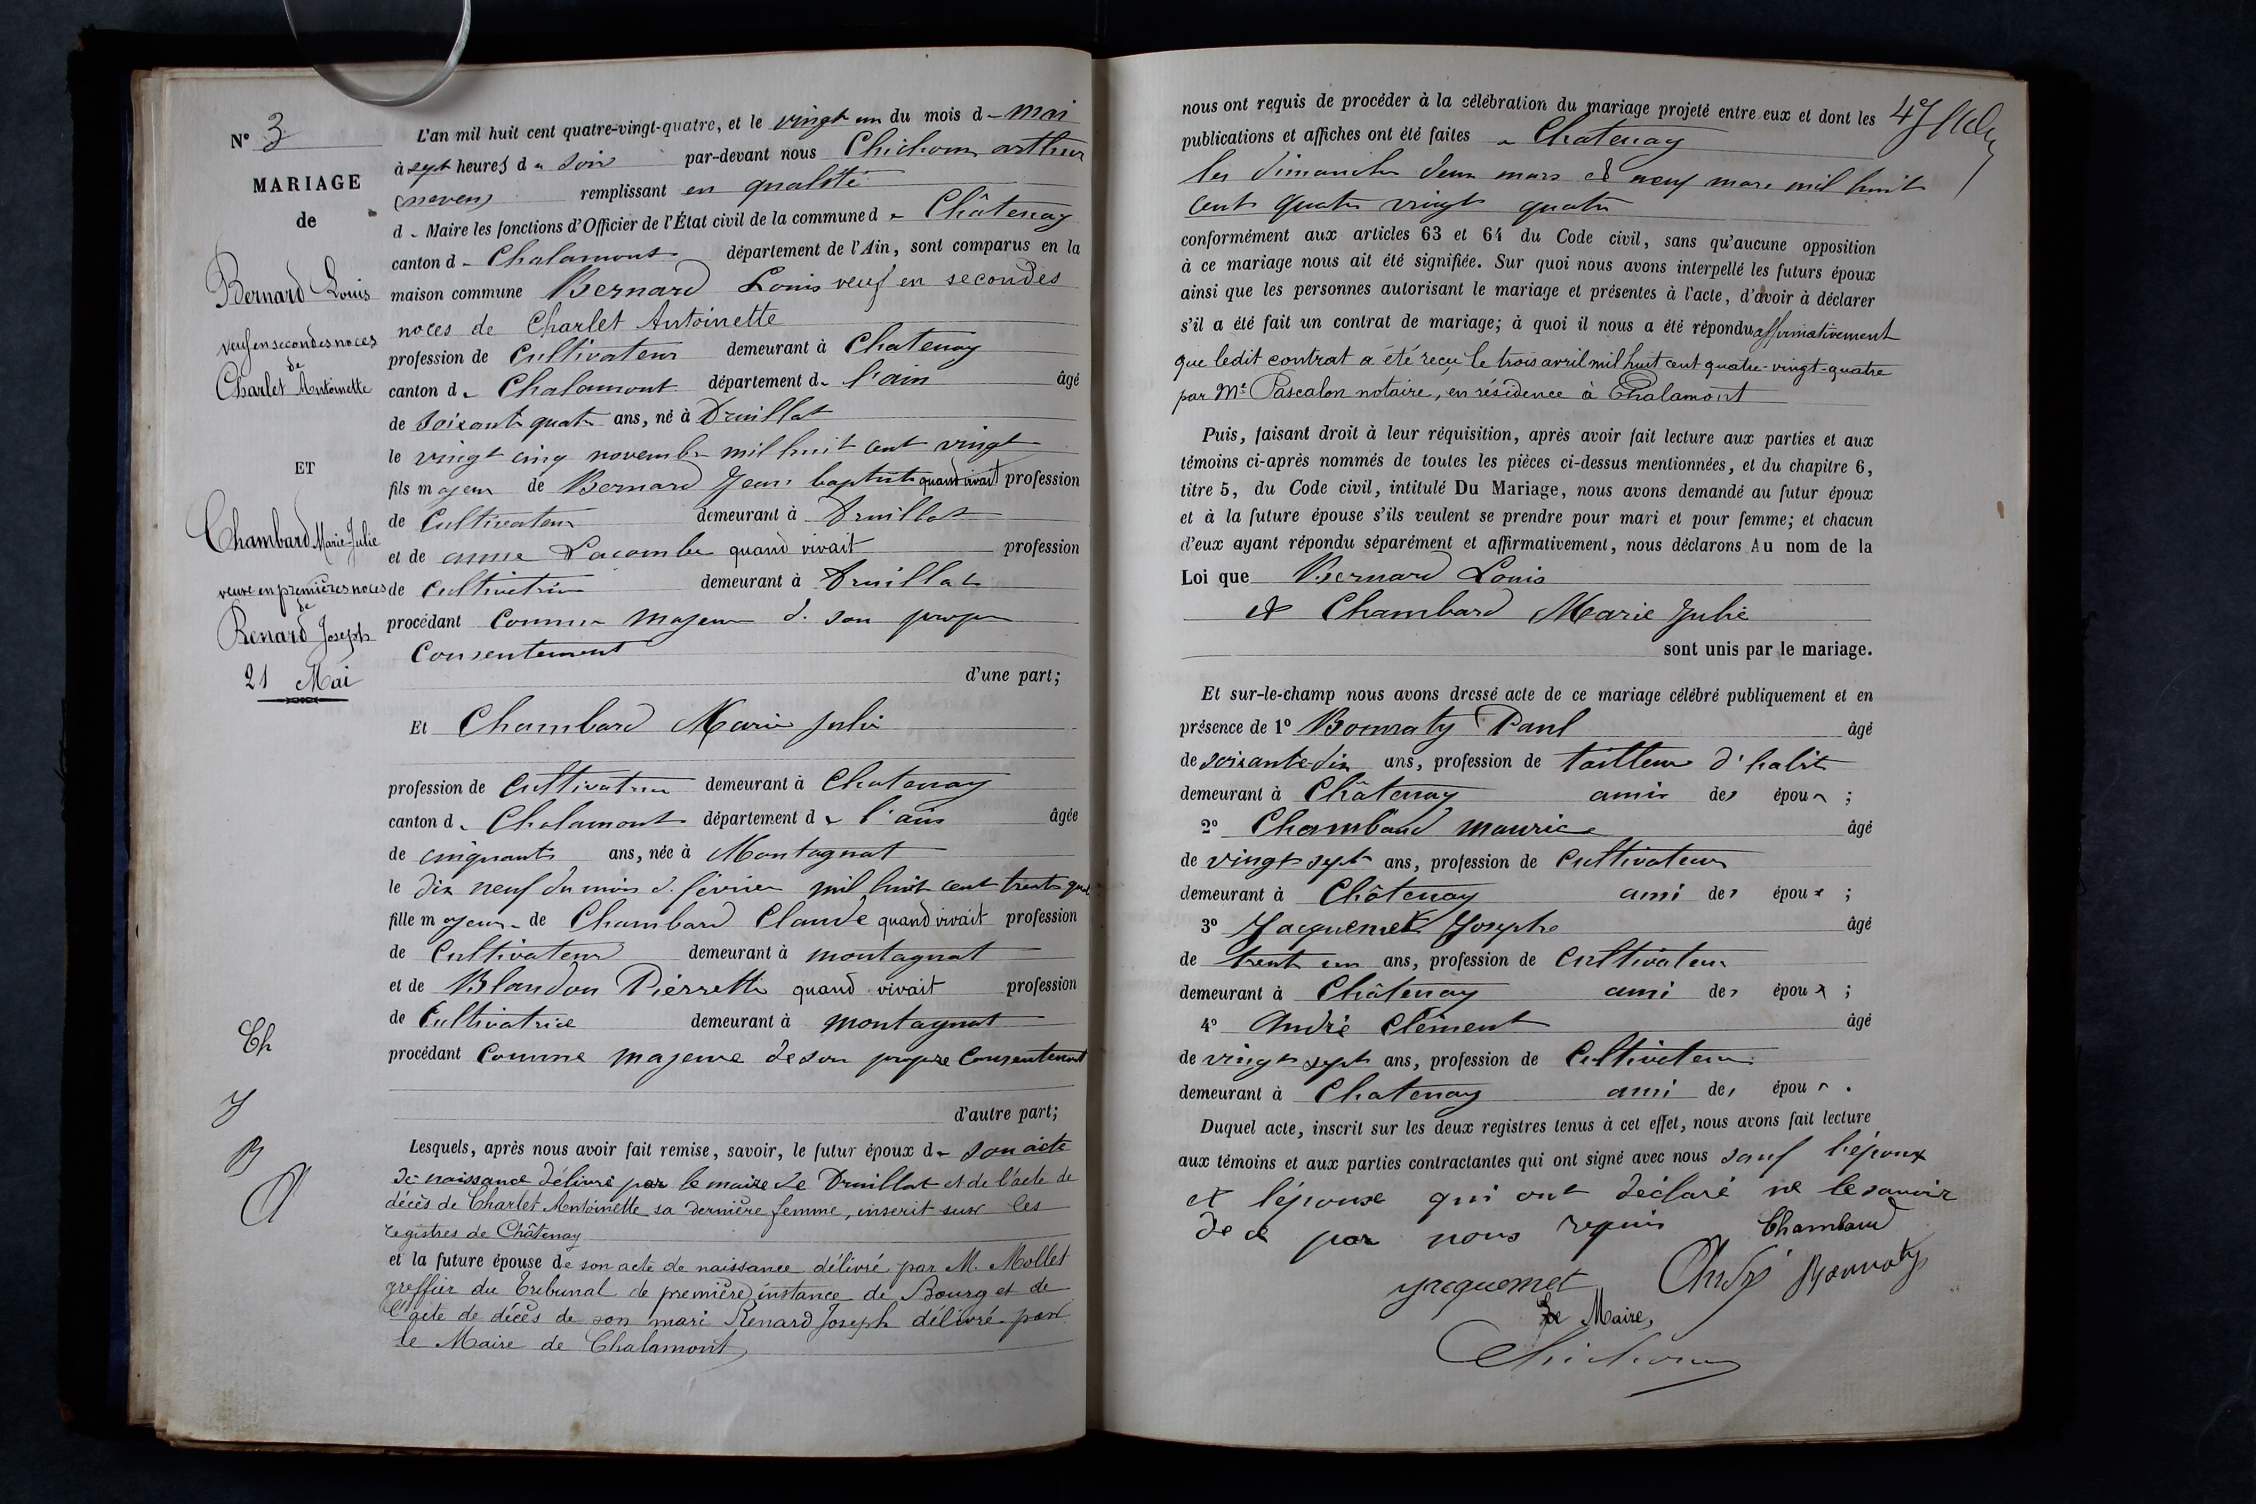 N° 3
MARIAGE
de
Bernard Louis
veuf en secondes noces
de
Charlet Antoinette
ET
Chambard Marie-Julie
veuve en premières noces
de
Renard Joseph
21 Mai
Ch
J
B
A
L'an mil huit cent quatre-vingt-quatre, et le vingt un du mois d - Mai
à sept heures d u soir par-devant nous Chichoux arthur
(neveu) remplissant en qualité
d - Maire les fonctions d'Officier de l'État civil de la commune d e Châtenay
canton d - Chalamont département de l'Ain, sont comparus en la
maison commune Bernard Louis veuf en secondes
noces de Charlet Antoinette
profession de Cultivateur demeurant à Chatenay
canton d - Chalamont département d - l'ain âgé
de soixante quatre ans, né à Druillat
le vingt cinq novembre mil huit cent vingt
fils majeur de Bernard Jean baptiste quand vivait profession
de Cultivateur demeurant à Druillat
et de anne Lacombe quand vivait profession
de Cultivatrice demeurant à Druillat
procédant Comme Majeur de son propre
Consentement
d'une part;
Et Chambard Marie Julie
profession de Cultivatrice demeurant à Chatenay
canton d - Chalamont département d e l'ain âgée
de cinquante ans, née à Montagnat
le dix neuf du mois de février mil huit cent trente quatre
fille majeure de Chambard Claude quand vivait profession
de Cultivateur demeurant à montagnat
et de Blandon Pierrette quand vivait profession
de Cultivatrice demeurant à montagnat
procédant Comme majeure de son propre Consentement
d'autre part;
Lesquels, après nous avoir fait remise, savoir, le futur époux d e son acte
de naissance délivré par le maire de Druillat et de l'acte de
décès de Charlet Antoinette sa dernière femme, inscrit sur les
registres de Châtenay
et la future épouse de son acte de naissance délivré par M. Mollet
greffier du Tribunal de première instance de Bourg et de
l'acte de décès de son mari Renard Joseph délivré par
le Maire de Chalamont
nous ont requis de procéder à la célébration du mariage projeté entre eux et dont les
publications et affiches ont été faites a Chatenay
les dimanches deux mars et neuf mars mil huit
cent quatre vingt quatre
conformément aux articles 63 et 64 du Code civil, sans qu'aucune opposition
à ce mariage nous ait été signifiée. Sur quoi nous avons interpellé les futurs époux
ainsi que les personnes autorisant le mariage et présentes à l'acte, d'avoir à déclarer
s'il a été fait un contrat de mariage; à quoi il nous a été répondu affirmativement
que ledit contrat a été reçu le trois avril mil huit cent quatre-vingt-quatre
par Me Pascalon notaire, en résidence à Chalamont
Puis, faisant droit à leur réquisition, après avoir fait lecture aux parties et aux
témoins ci-après nommés de toutes les pièces ci-dessus mentionnées, et du chapitre 6,
titre 5, du Code civil, intitulé Du Mariage, nous avons demandé au futur époux
et à la future épouse s'ils veulent se prendre pour mari et pour femme; et chacun
d'eux ayant répondu séparément et affirmativement, nous déclarons Au nom de la
Loi que Bernard Louis
et Chambard Marie Julie
sont unis par le mariage.
Et sur-le-champ nous avons dressé acte de ce mariage célébré publiquement et en
présence de 1° Bonnaty Paul âgé
de soixante-dix ans, profession de tailleur d'habit
demeurant à Châtenay amis des époux ;
2° Chambaud maurice âgé
de vingt sept ans, profession de Cultivateur
demeurant à Châtenay ami des époux ;
3° Jacquemet Joseph âgé
de trent un ans, profession de Cultivateur
demeurant à Châtenay ami des époux ;
4° André Clément âgé
de vingt sept ans, profession de Cultivateur
demeurant à Chatenay ami des époux .
Duquel acte, inscrit sur les deux registres tenus à cet effet, nous avons fait lecture
aux témoins et aux parties contractantes qui ont signé avec nous sauf l'époux
et l'épouse qui ont déclaré ne le savoir
de ce par nous requis Chambaud
Jacquemet André Bonnaty
Le Maire,
Chichoux